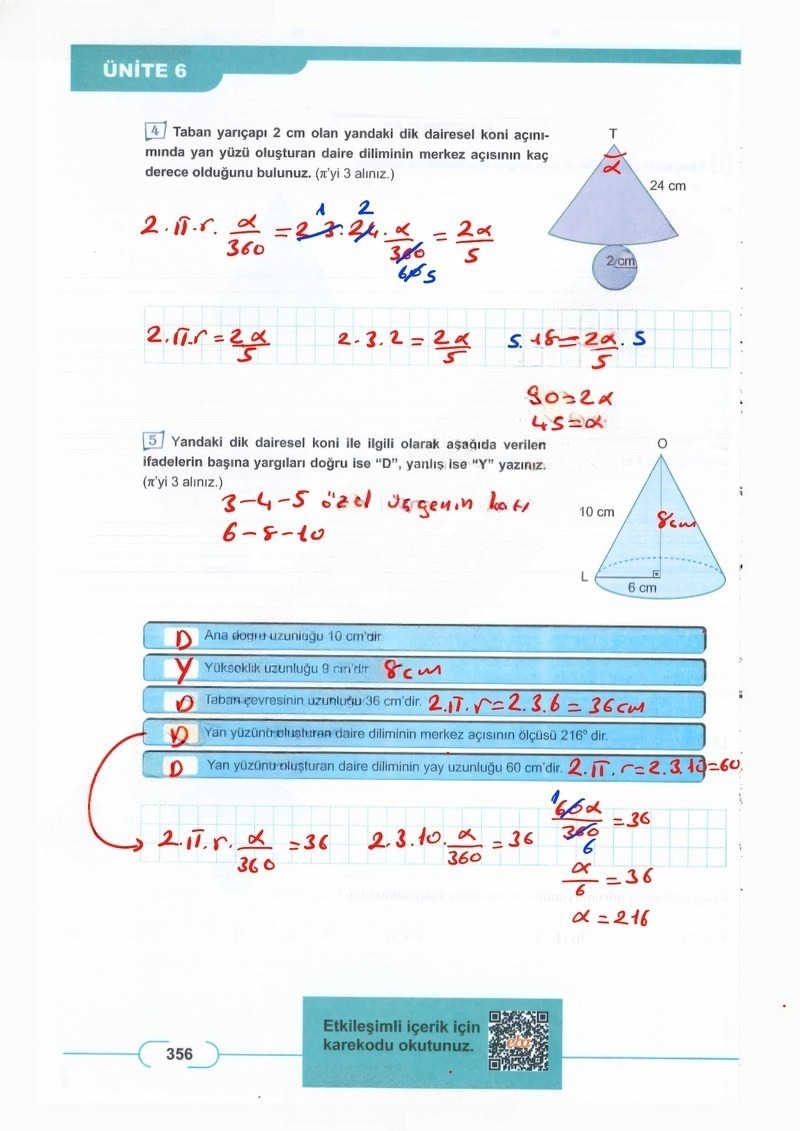 ÜNİTE 6
4 Taban yarıçapı 2 cm olan yandaki dik dairesel koni açını-
mında yan yüzü oluşturan daire diliminin merkez açısının kaç
derece olduğunu bulunuz. (π'yi 3 alınız.)
T
α
24 cm
2 cm
2.π.r. α/360 = 2.3.24.α/360 = 2α/5
1 2
60 5
2.π.r = 2α/5 2.3.2 = 2α/5 5. 18 = 2α/5 . 5
90=2α
45=α
5 Yandaki dik dairesel koni ile ilgili olarak aşağıda verilen
ifadelerin başına yargıları doğru ise "D", yanlış ise "Y" yazınız.
(π'yi 3 alınız.)
3-4-5 özel üçgenin katı
6-8-10
O
10 cm
8cm
L
6 cm
D Ana doğru uzunluğu 10 cm'dir.
Y Yükseklik uzunluğu 9 cm'dir 8cm
D Taban çevresinin uzunluğu 36 cm'dir. 2.π.r=2.3.6 = 36cm
D Yan yüzünü oluşturan daire diliminin merkez açısının ölçüsü 216° dir.
D Yan yüzünü oluşturan daire diliminin yay uzunluğu 60 cm'dir. 2.π.r=2.3.10=60
2.π.r. α/360 =36 2.3.10. α/360 =36 60α/360 =36
1 6
α/6 =36
α=216
Etkileşimli içerik için
karekodu okutunuz.
eba
356